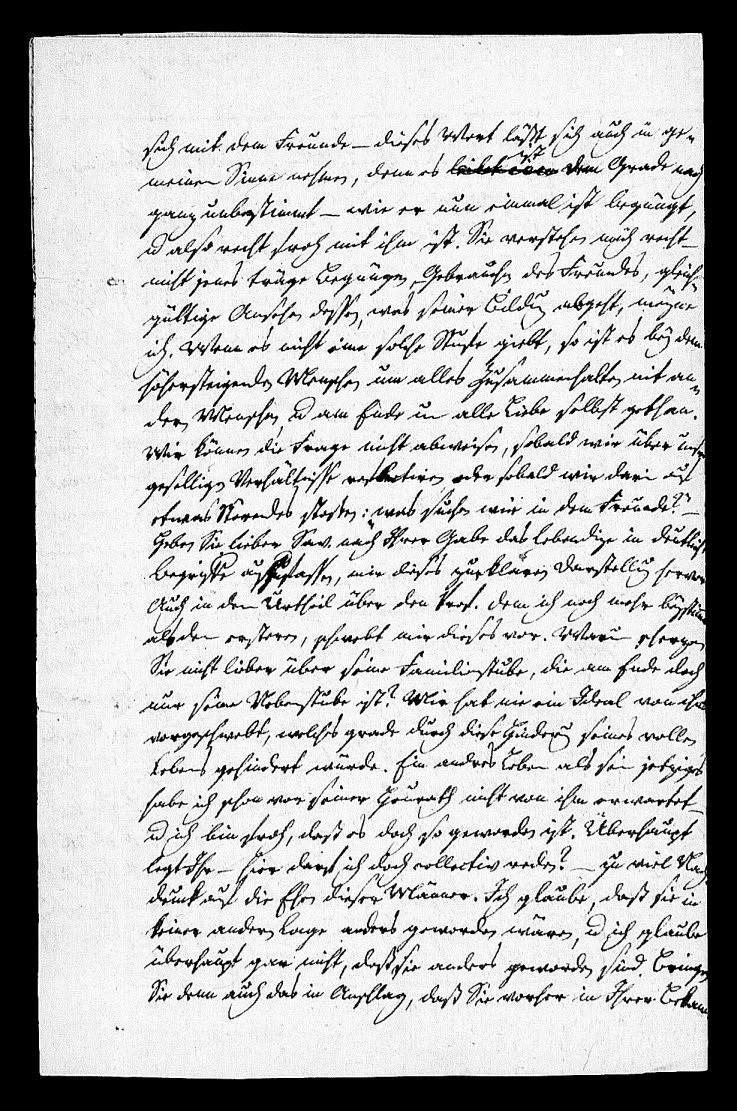 sich mit dem Freunde – dieses Wort läßt sich auch in ge-
meinem Sinne nehmen, denn es ist dem Grade nach
ganz unbestimmt – wie er nun einmal ist begnügt,
u also recht froh mit ihm ist. Sie verstehen mich recht –
nicht jenes träge Begnügen, Gebrauchen des Freundes, gleich-
gültige Ansehen dessen, was seiner Bildung abgeht, meyne
ich. Wenn es nicht eine solche Stufe giebt, so ist es bey dem
höhersteigenden Menschen um alles Zusammenhalten mit an-
dern Menschen, u am Ende um alle Liebe selbst gethan.
Wir können die Frage nicht abweisen, sobald wir über unsre
geselligen Verhältnisse reflectiren oder sobald wir darin auf
etwas Störendes stoßen: was suchen wir in dem Freunde? –
Geben Sie lieber Sav. nach Ihrer Gabe das Lebendige in deutliche
Begriffe aufzufassen, mir dieses zur klaren Darstellung hervor
Auch in dem Urtheil über den Prof. dem ich noch mehr beystimme
als dem ersteren, schwebt mir dieses vor. Warum scherzen
Sie nicht lieber über seine Familienstube, die am Ende doch
nur seine Nebenstube ist? Mir hat nie ein Ideal von ihm
vorgeschwebt, welches grade durch diese Hinderung seines vollen
Lebens gehindert würde. Ein andres Leben als sein jetziges
habe ich schon vor seiner Heurath nicht von ihm erwartet –
u ich bin froh, daß es doch so geworden ist. Überhaupt
legt Ihr – hier darf ich doch collectiv reden? – zu viel Nach-
druck auf die Ehen dieser Männer. Ich glaube, daß sie in
keiner andern Lage anders geworden wären, u ich glaube
überhaupt gar nicht, daß sie anders geworden sind. Bringen
Sie denn auch das in Anschlag, daß Sie vorher in Ihrer Bekann